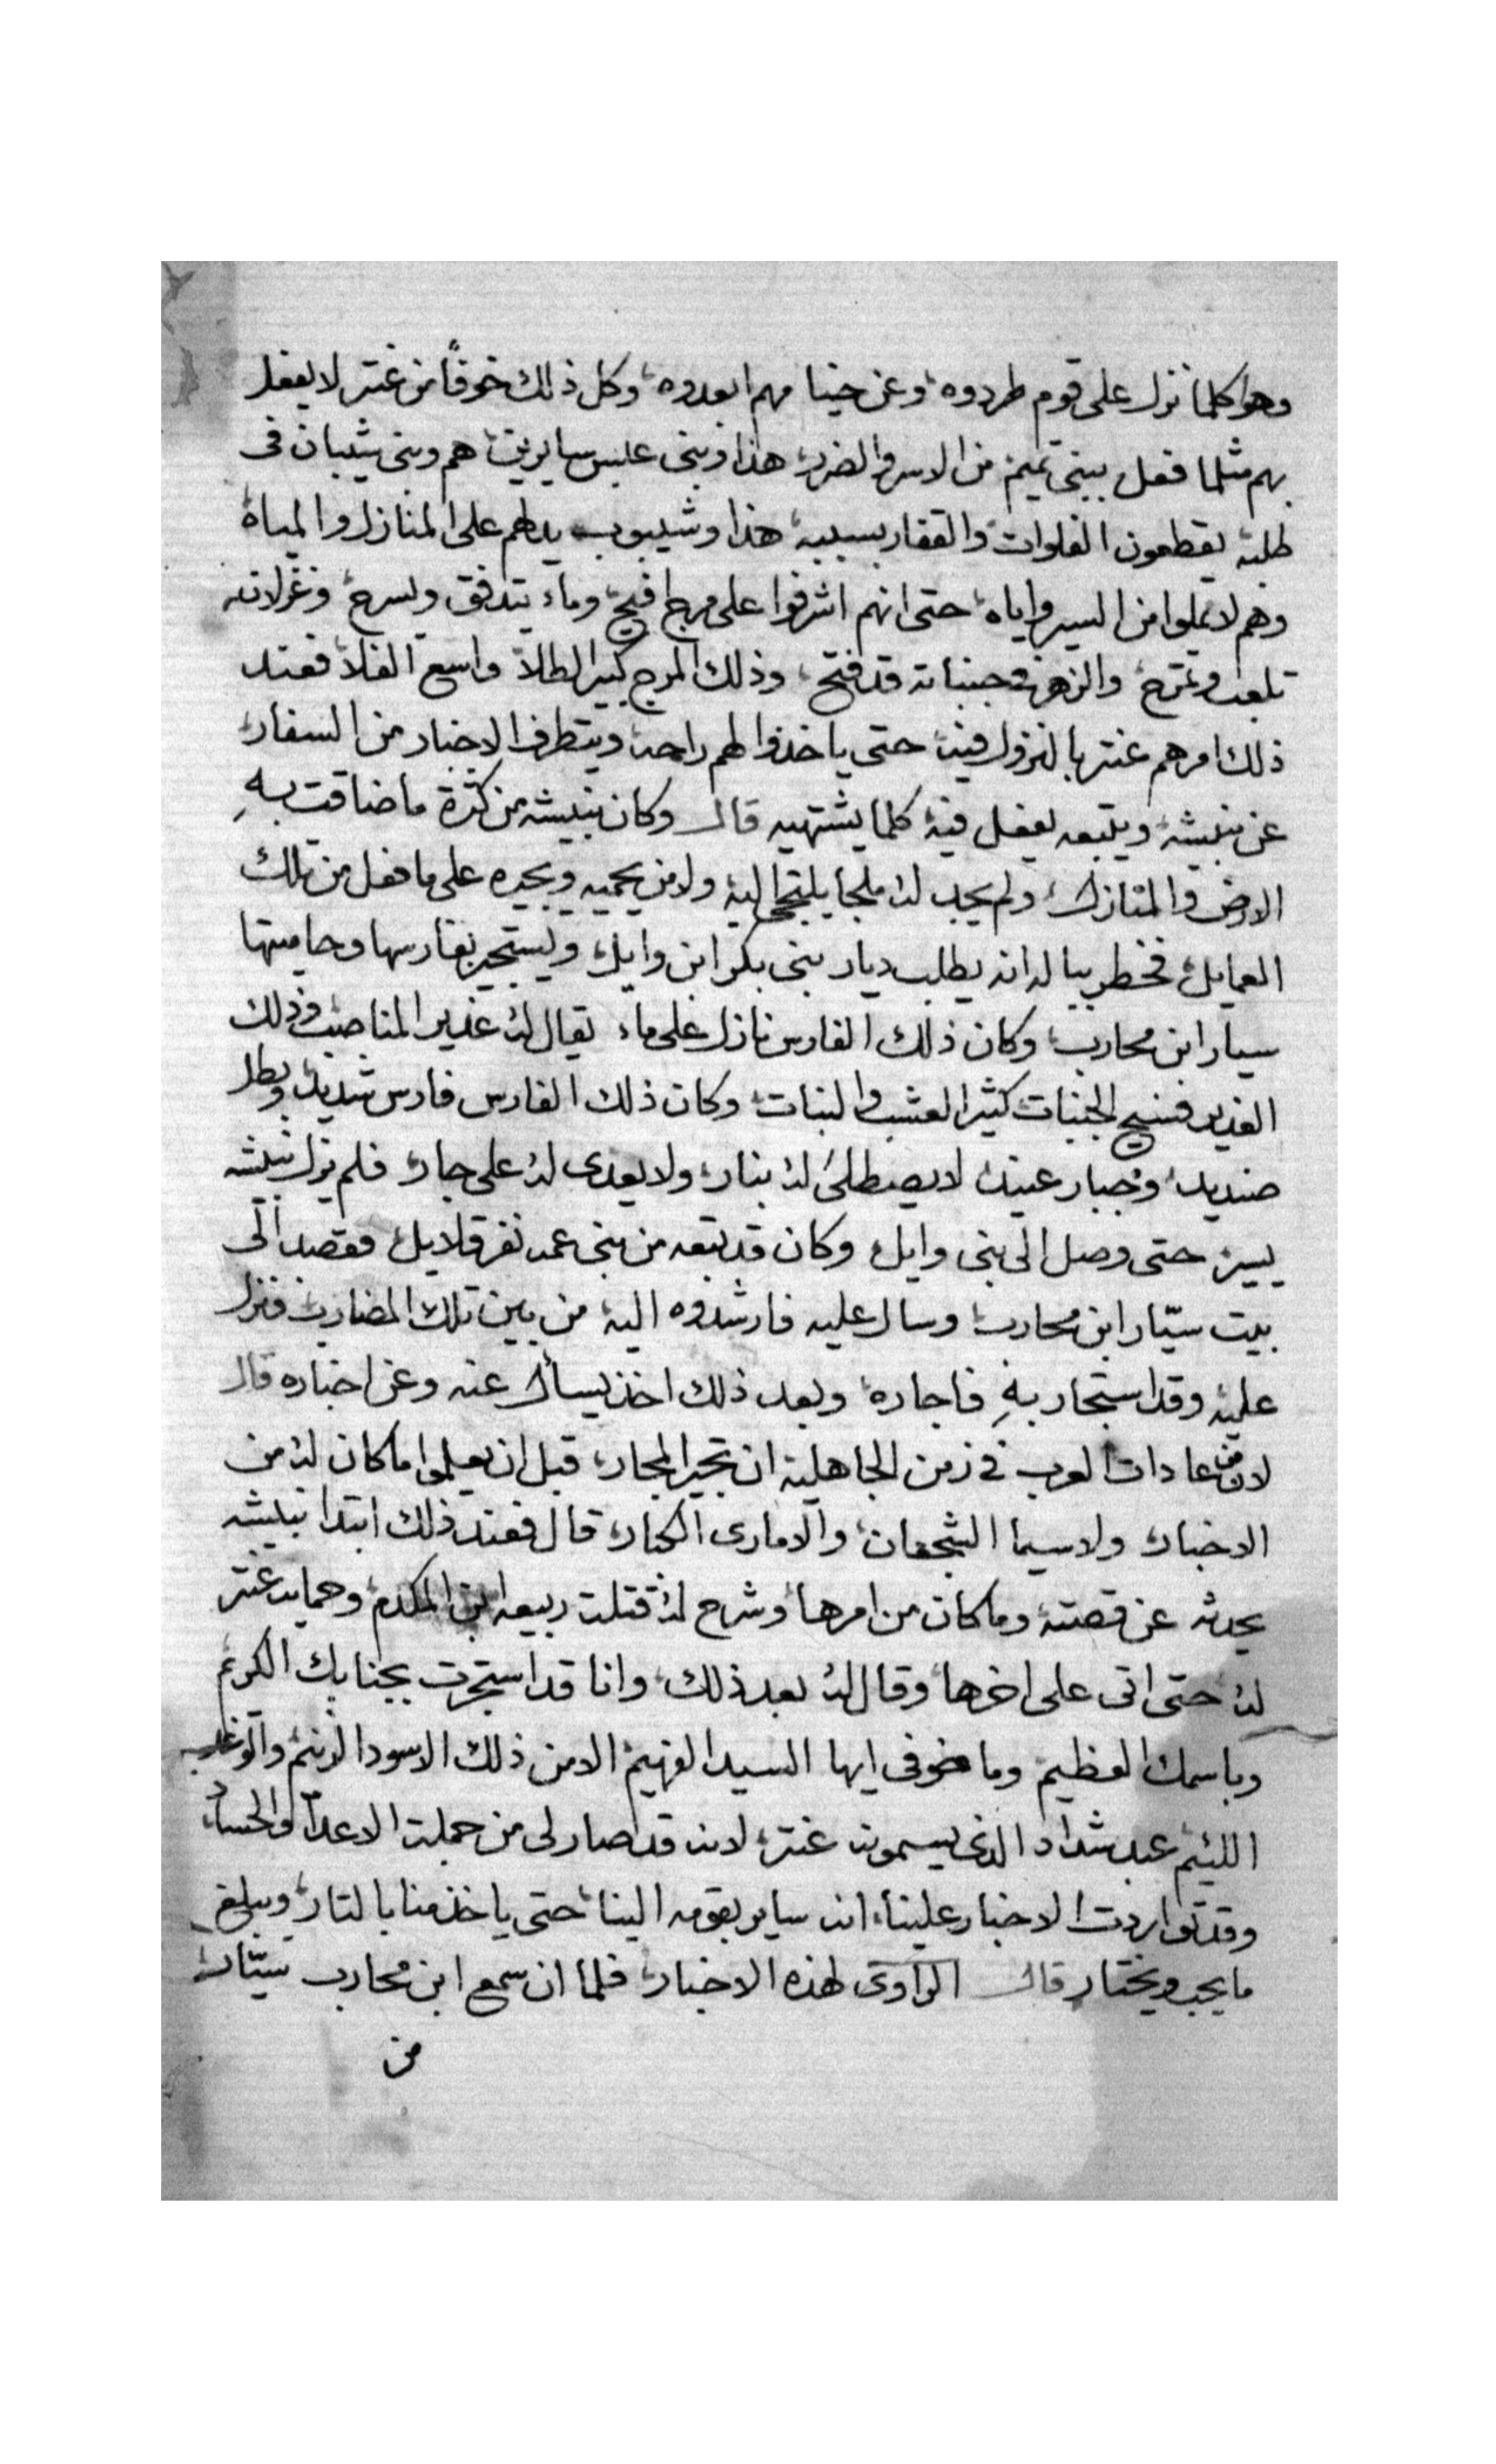 وهو كلما نزل على قوم طردوه وعن خيامهم ابعدوه وكل ذلك خوفاً من عنتر لا يفعل
بهم مثلما فعل ببنى تميم من الاسر والضرب هذا وبنى عبس سايرين هم وبنى شيبان فى
طلبه يقطعون الفلوات والقفار بسببه هذا وشيبوب يدلهم على المنازل والمياه
وهم لا يملوا من السير واياه حتى انهم اشرفوا على مرج افيح وماء يتدفق ويسرح وغزلانه
تلعب وتمرح والزهر فى جنباته قد فتح وذلك المرج كبير الطلا واسع الفلا فعند
ذلك امرهم عنتر بالنزول فيه حتى ياخذوا لهم راحه ويتطرف الاخبار من السفار
عن نبيشه ويتبعه يفعل فيه كلما يشتهيه قال وكان نبيشه من كثرة ما ضاقت بهِ
الارض والمنازل ولم يجد له ملجا يلتجى اليه ولا من يحميه ويجيره على ما فعل من تلك
العمايل فخطر بباله انه يطلب ديار بنى بكر ابن وايل ويستجير بفارسها وحاميتها
سيار ابن محارب وكان ذلك الفارس نازل على ماء يقال له غدير المناصب وذلك
الغدير فسيح الجنبات كثير العشب والنبات وكان ذلك الفارس فارس شديد وبطل
صنديد وجبار عنيد لا يصطلى له بنار ولا يعدى له على جار فلم يزل نبيشه
يسير حتى وصل الى بنى وايل وكان قد تبعه من بنى عمه نفر قلايل فقصد الى
بيت سيّار ابن محارب وسال عليه فارشدوه اليه من بين تلك المضارب فنزل
عليه وقد استجار بهِ فاجاره وبعد ذلك اخذ يسأل عنه وعن اخباره قال
لان من عادات العرب فى زمن الجاهلية ان تجير المجار قبل ان يعلموا ما كان له من
الاخبار ولا سيما الشجعان والامارى الكبار قال فعند ذلك ابتدا نبيشه
يحدثه عن قصته وما كان من امرها وشرح له قتلت ربيعه ابن المكدم وحمايه عنتر
له حتى اتى على اخرها وقال له بعد ذلك وانا قد استجرت بجنابك الكريم
وباسمك العظيم وما خوفى ايها السيد الفهيم الا من ذلك الاسود الزنيم والوغد
اللئيم عبد شداد الذى يسموه عنتر لانه قد صار لى من جملت الاعدآ والحساد
وقد تواردت الاخبار علينا انه ساير بقومه الينا حتى ياخذ منا بالتار ويبلغ
ما يحب ويختار قال الراوى لهذه الاخبار فلما ان سمع ابن محارب سيّار
من